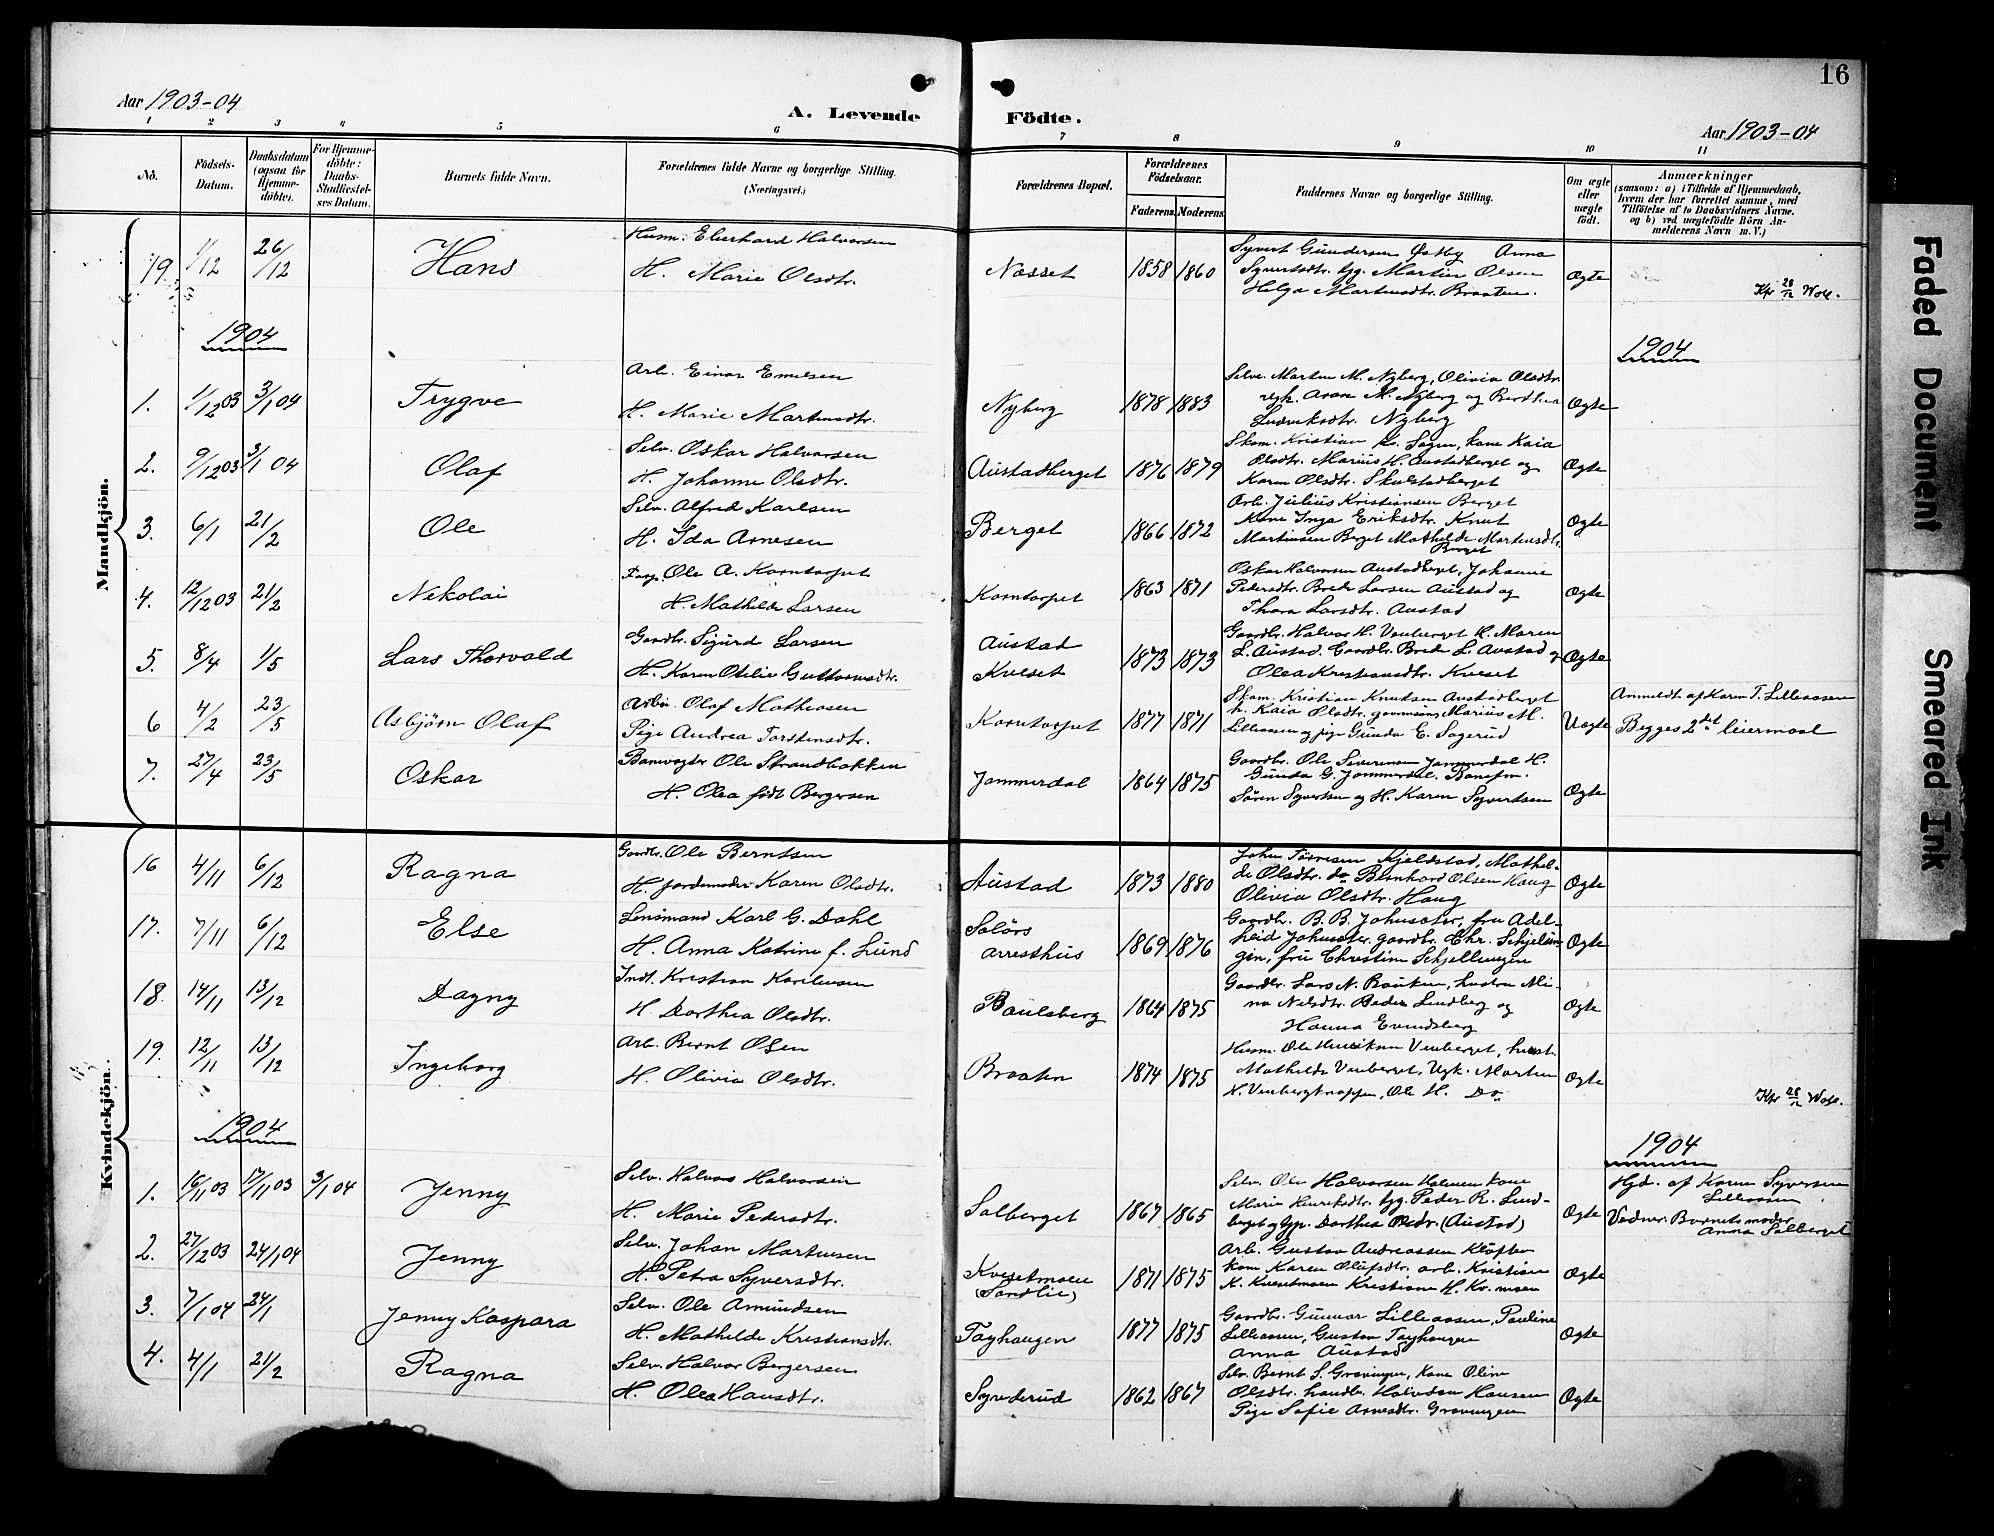 16
Aar 1903-04
A. Levende Födte.
Aar 1903-04
1 2 3 4 5 6 7 8 9 10 11
No.
Födsels-Datum.
Daabsdatum (ogsaa for Hjemmedöbte).
For Hjemmedöbte: Daabs-Stadfæstelses Datum.
Barnets fulde Navn.
Forældrenes fulde Navne og borgerlige Stilling. (Næringsvei.)
Forældrenes Bopæl.
Forældrenes Födselsaar.
Faderens. Moderens.
Faddernes Navne og borgerlige Stilling.
Om ægte eller uægte födt.
Anmærkninger
(saasom: a) i Tilfælde af Hjemmedaab, hvem der har forrettet samme, med Tilföielse af to Daabsvidners Navne. og b) ved uægtefödte Börn Anmelderens Navn m. V.)
Mandkjön.
19. 1/12 26/12 Hans
Husm. Eberhard Halvorsen
H. Marie Olsdtr.
Næsset 1858 1860
Syvert Gundersen Østby Anna
Syvertsdtr. Martin Olsen
Helga Martinsdtr. Braaten.
Ægte
Kfr 28/12 Wox.
1904
1904
1. 1/12 03 3/1 04 Trygve
Arb. Einar Emilsen
H. Marie Martinsdtr.
Nyberg 1878 1883
Selv. Martin M. Nyberg, Olivia Olsdtr.
M. Nyberg og Berthea
Ludviksdtr. Nyberg
Ægte
2. 9/12 03 3/1 04 Olaf
Selv. Oskar Halvorsen
H. Johanne Olsdtr.
Austadberget 1876 1879
Skom. Kristian Kn. Sagen, kone Kaia
Olsdtr. Marius H. Austadberget og
Karen Olsdtr. Skulstadberget
Ægte
3. 6/1 21/2 Ole
Selv. Alfred Karlsen
H. Ida Arnesen
Berget 1866 1872
Arb. Julius Kristiansen Berget
Kone Inga Eriksdtr. Knut
Martinsen Berget Mathilde Martinsdtr.
Berget
Ægte
4. 12/12 03 21/2 Nikolai
Ole A. Korntorpet
H. Mathilde Larsen
Korntorpet 1863 1871
Oskar Halvorsen Austadberget, Johanne
Pedersdtr. Brede Larsen Austad og
Thora Larsdtr. Austad
Ægte
5. 8/4 1/5 Lars Thorvald
Gaardbr. Sigurd Larsen
H. Karen Otilie Guttormsdtr.
Austad
Kveset 1873 1873
Gaardbr. Halvor H. Venberget H. Maren
L. Austad. Gaardbr. Brede L. Austad og
Olea Kristiansdtr. Kveset
Ægte
6 4/2 23/5 Asbjørn Olaf
Arbr. Olaf Matheasen
Pige Andrea Torstensdtr.
Korntorpet 1877 1871
Skom. Kristian Knutsen Austadberget
h. Kaia Olsdtr. Marius M.
Lilleaasen og pige Gunda E. Sagerud
Uægte
Anmeldt af Karen T. Lilleaasen
Begges 2det leiermaal
7. 27/4 23/5 Oskar
Banevogter Ole Strandbakken
H. Olea født Bergersen
Jammerdal 1864 1875
Gaardbr. Ole Severinsen Jammerdal H.
Gunda G. Jammerdal. Banefm.
Søren Syvertsen og H. Karen Syvertsen
Ægte
Kvindekjön.
16 4/11 6/12 Ragna
Gaardbr. Ole Berntsen
H. jordemoder Karen Olsdtr.
Austad 1873 1880
John Tørresen Kjeldstad, Mathil-
de Olsdtr. do Bernhard Olsen Haug
Olivia Olsdtr. Haug
Ægte
17. 7/11 6/12 Else
Lensmand Karl G. Dahl
H. Anna Katrine f. Lund
Solørs
arresthus 1869 1876
Gaardbr. B. B. Johnsæter, fru Adel-
heid Johnsæter. gaardbr. Chr. Schjellun-
gen, fru Christine Schjellungen
Ægte
18. 14/11 13/12 Dagny
Indl. Kristian Karelusen
H. Dorthea Olsdtr.
Baulsberg 1864 1875
Gaardbr. Lars N. Rauken, hustru Mi-
na Nilsdtr. Peder Lundberg og
Hanna Evindsberg
Ægte
19. 12/11 13/12 Ingeborg
Arb. Bernt Olsen
H. Olivia Olsdtr.
Braaten 1874 1875
Husm. Ole Henriksen Venberget, hust.
Mathilde Venberget, Ugk. Martin
H. Venbergknappen, Ole H. Do
Ægte
Kfr 28/12 Wox.
1904
1904
1. 16/11 03 17/11 03 3/1 04 Jenny
Selv. Halvor Halvorsen
H. Marie Pedersdtr.
Solberget 1867 1865
Selv. Ole Halvorsen Holmen kone
Marie Henriksdtr. Peder R. Lund-
berget og Dorthea Olsdr. (Austad)
Ægte
Hjd. af Karen Syversen
Lilleaasen
Vidner: Barnets moder
Anna Solberget
2. 27/12 03 24/1 04 Jenny
Selv. Johan Martinsen
H. Petra Syversdtr.
Kvesetmoen
(Sandlie) 1871 1875
Arb. Gustav Andreassen Kløften
kone Karen Olufsdtr. arb. Kristian
K. Kvesetmoen Kristiane H. Kv.moen
Ægte
3. 7/1 04 24/1 Jenny Kaspara
Selv. Ole Amundsen
H. Mathilde Kristiansdtr.
Tøyhaugen 1877 1875
Gaardbr. Gunnar Lilleaasen, Pauline
Lilleaasen, Gustav Tøyhaugen
Anna Austad
Ægte
4. 4/1 21/2 Ragna
Selv. Halvor Bergersen
H. Olea Hansdtr.
Synderud 1862 1867
Selv. Bernt S. Gravingen, Kone Oline
Olsdtr. landbr. Halvdan Hansen
Pige Sofie Arnesdtr. Gravingen
Ægte
Faded Document
Smeared Ink